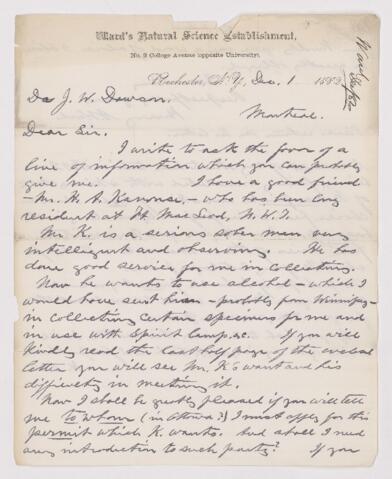 Ward's Natural Science Establishment,
No. 2 College Avenue opposite University,
Rochester, N.Y., Dec. 1 1882
Ward
Dr J. W. Dawson.
Montreal.
Dear Sir.
I write to ask the favor of a
line of information which you can probably
give me. I have a good friend
- Mr. H. A. - who has been long
resident at Ft. MacLeod, N.W.T.
Mr. K. is a serious sober man very
intelligent and observing. He has
done good service for me in collecting.
Now he wants to use alcohol - which I
would have sent him - probably from Winnipeg -
in collecting certain specimens for me and
in use with Spirit Lamp &c. If you will
kindly read the last half page of the enclosed
letter you will see Mr. K's want and his
difficulty in meeting it.
Now I shall be greatly pleased if you will tell
me to whom (in Ottawa?) I must apply for this
permit which K. wants. And shall I need
any introduction to such party? If you